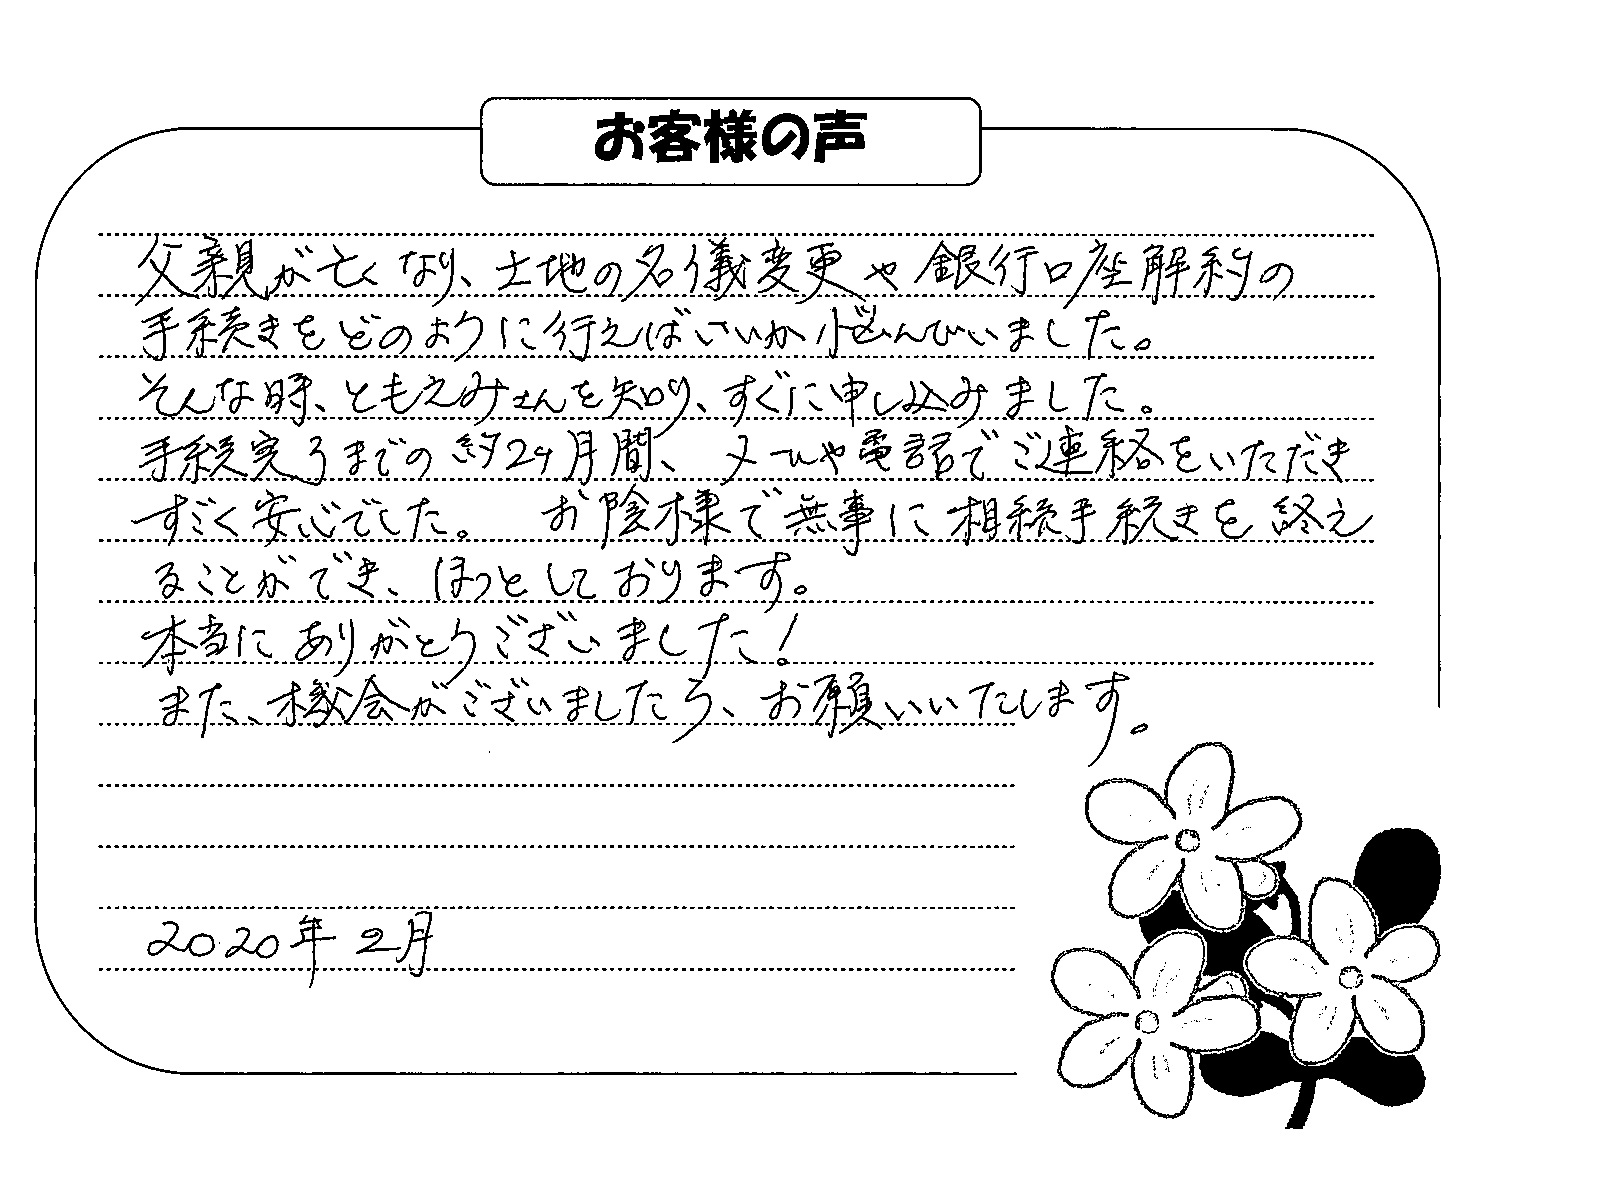 お客様の声
父親が亡くなり、土地の名儀変更や銀行口座解約の
手続きをどのように行えばいいか悩んでいました。
そんな時、ともえみさんを知り、すぐに申し込みました。
手続完了までの約2ヶ月間、メールや電話でご連絡をいただき
すごく安心でした。 お陰様で無事に相続手続きを終え
ることができ、ほっとしております。
本当にありがとうございました!
また、機会がございましたら、お願いいたします。
2020年2月